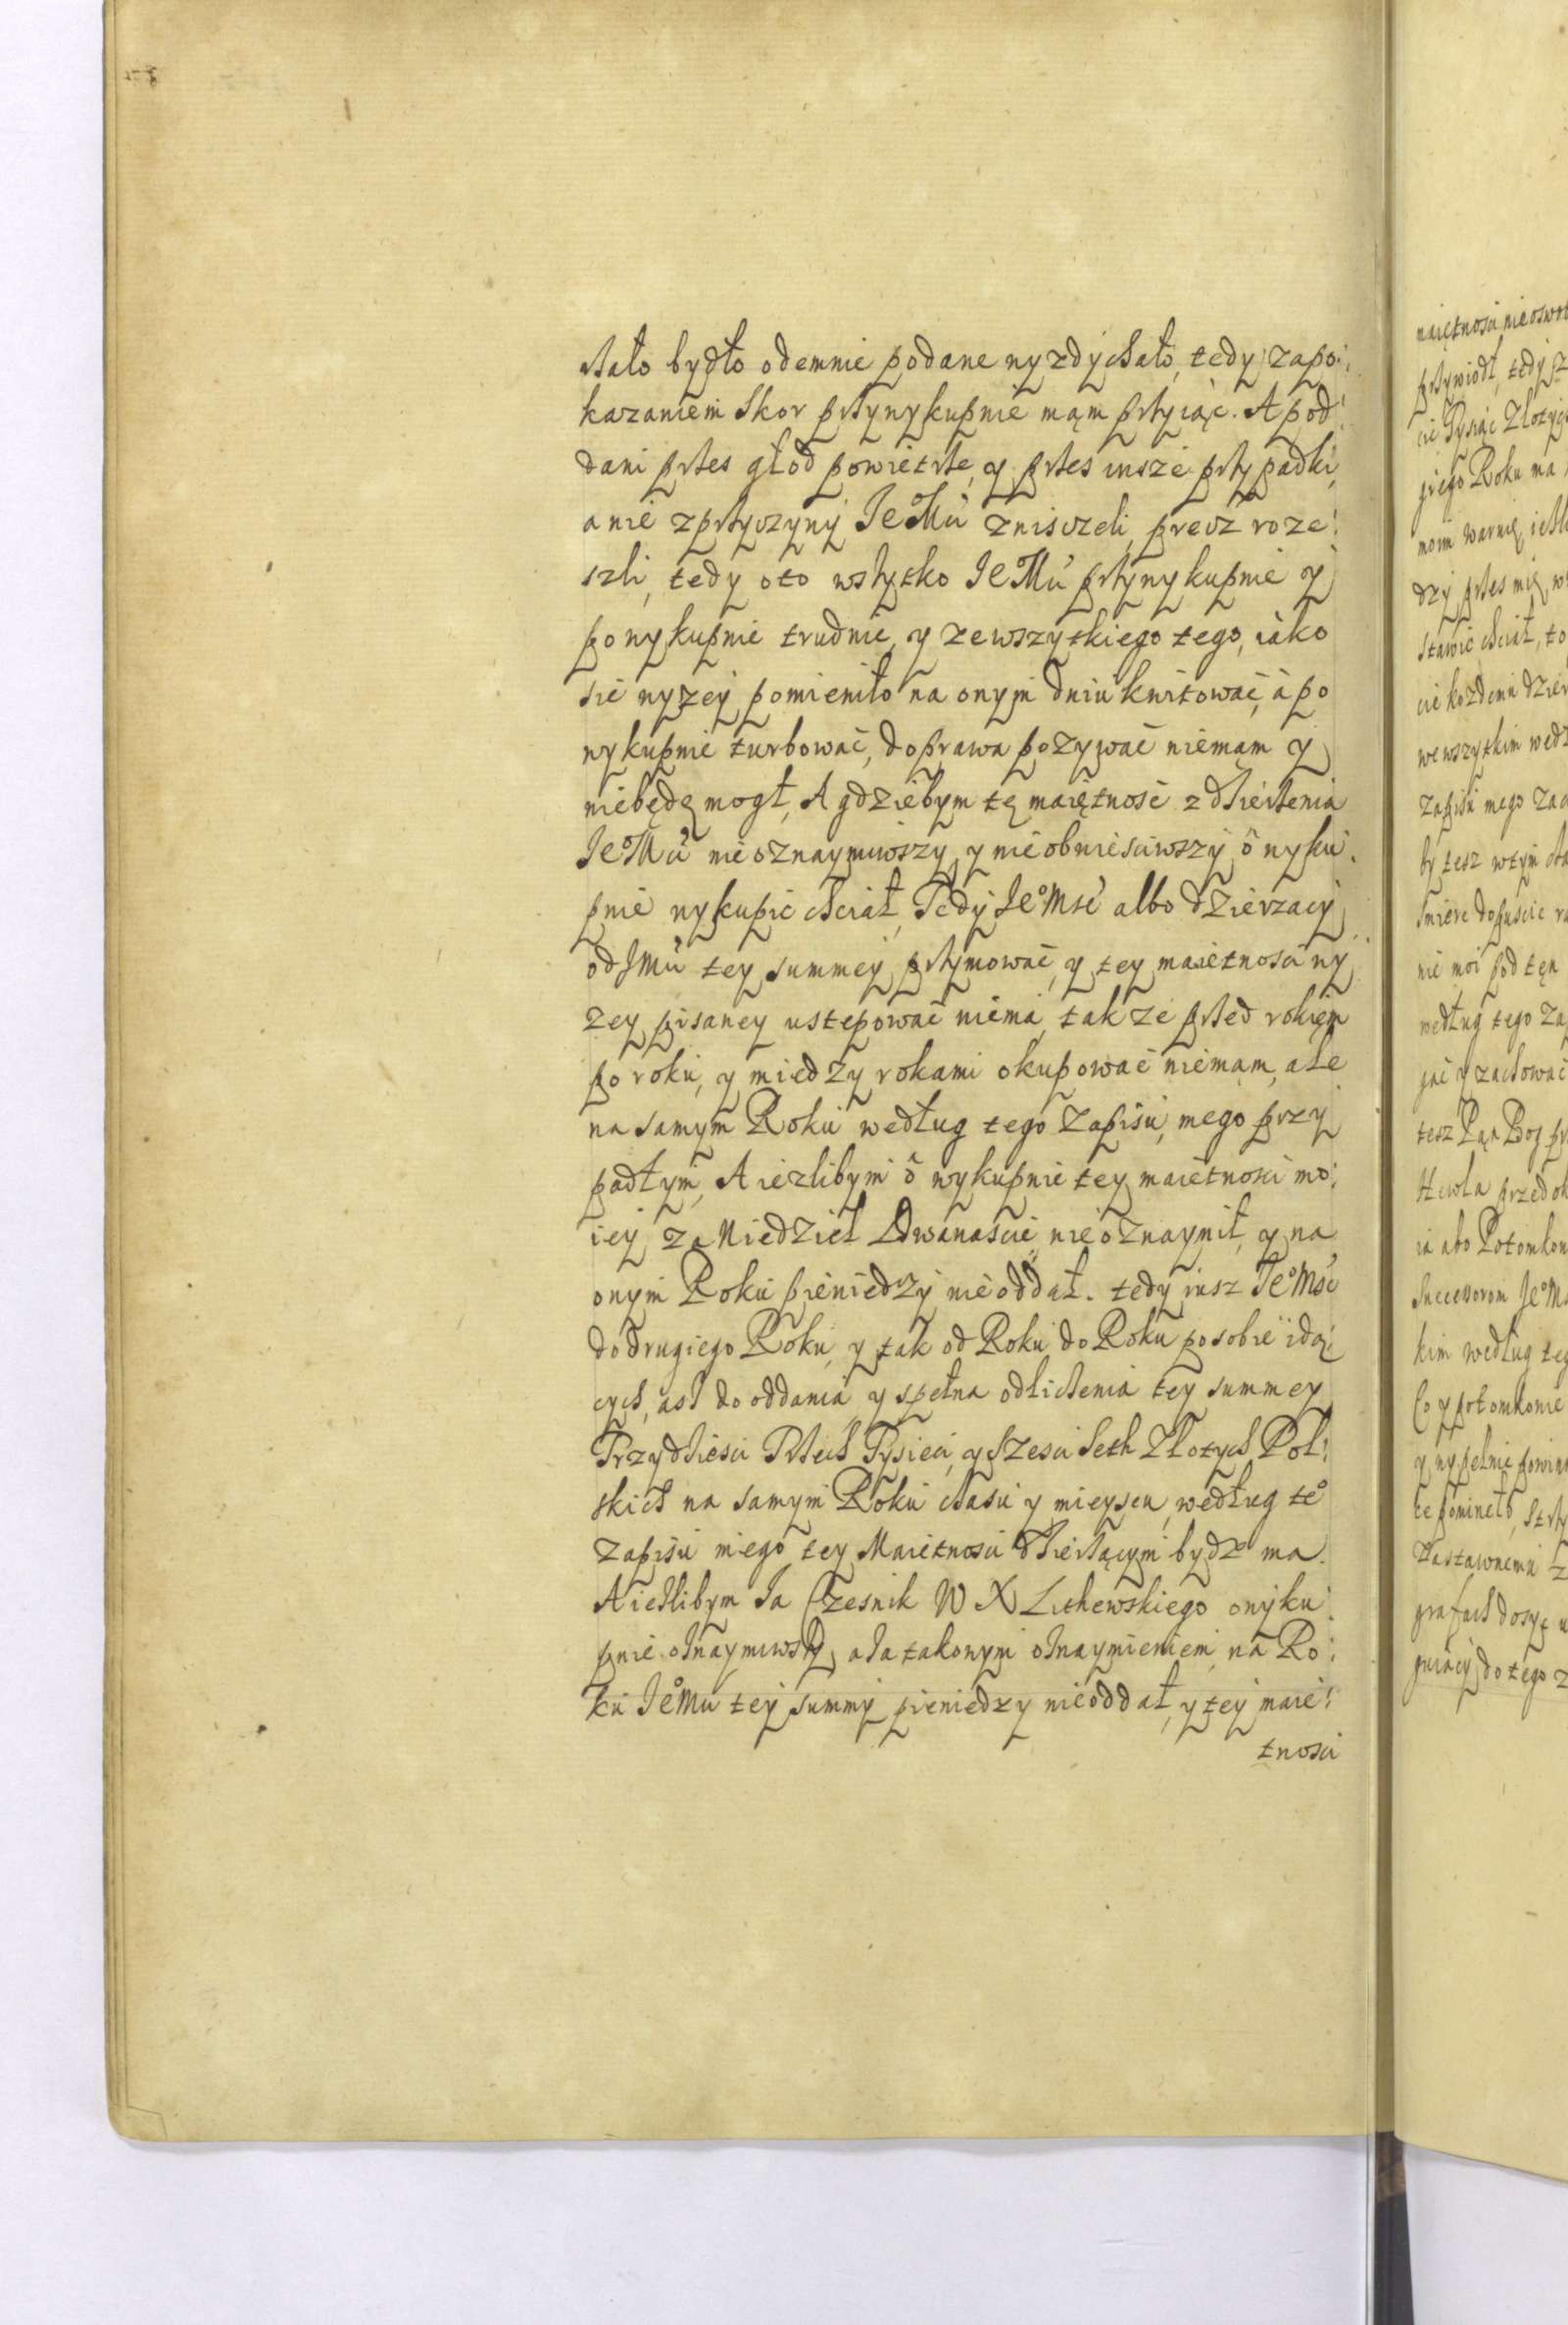 stało bydło odemnie podane wyzdychało, tedy zapo:
kazaniem skor przywykupnie mąm przyiąc. A pod:
dani przes głod powietrze, y przes insze przypadki,
a nie zprzyczyny JeMu zniszczeli, precz roze:
szli, tedy oto wszytko JeMu przywykupnie y
po wykupnie trudnic, y zewszytkiego tego, iako
sie wyzey pomieniło na onym dniu kwitować, a po
wykupnie turbować, do prawa pozywać niemam y
niebędę mogł, A gdziebym tę maiętność z dzierzenia
JeMu nieoznaymiwszy y nieobwiesciwszy o wyku:
pnie wykupic chciał, Tedy JeoMsc albo dzierzacy
od JMu tey summey przymować, y tey maietnosci wy
zey pisaney ustepować niema, takze przed rokiem
po roku, y miedzy rokami okupować niemam, ale
na samym Roku według tego Zapisu mego przy
padłym, A iezlibym o wykupnie tey maietnosci mo:
iey za Niedziel Dwanascie nieoznaymił, y na
onym Roku pieniedzy nieoddał. tedy iusz JeoMsc
do drugiego Roku, y tak od Roku do Roku posobie idą:
cych, asz do oddania y spełna odliczenia tey summey
Trzydziesci Trzech Tysiecy, y Szesci Seth Złotych Pol:
skich na samym Roku czasu y mieyscu, według teo
zapisu mego tey Maietnosci dzierzącym bydz ma.
A ieslibym Ja Czesnik W X Lithewskiego owyku:
pnie oznaymiwszy, a za takowym oznaymieniem na Ro:
ku JeoMu tey summy pieniedzy nieoddał, y tey maie:
tnosci
maiętnosci nieoswo
przywiodł, tedy
cie Tysiąc Złotych
giego Roku ma
moim
dzy przes mię
stawic chciał, to
cie kozdemu
we wszytkim
zapisu mego
by tesz wtym
smierc dopuscic
nie moi pod tęn
według tego
y zachować
tesz Pąn Bog
przed
ia abo
Successorom JeoM
kim według
Co y potomkowie
y wypełnic
Zastawnemu
dosyt
do tego